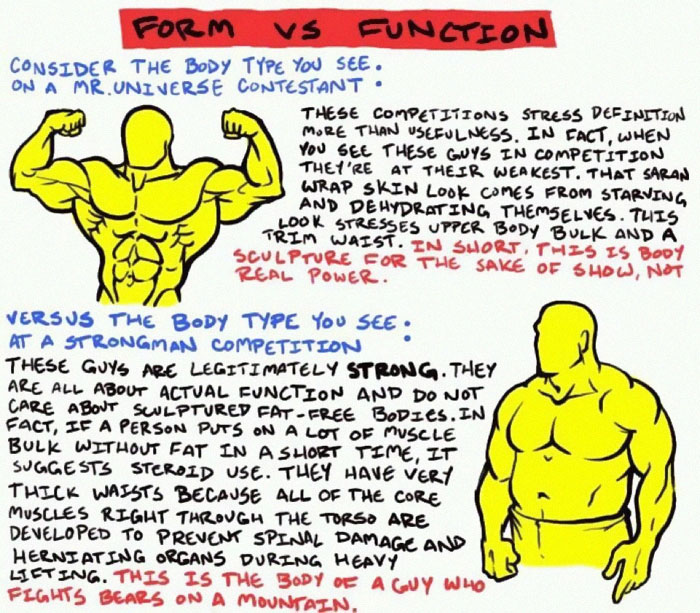 FORM VS FUNCTION
CONSIDER THE BODY TYPE YOU SEE.
ON A MR. UNIVERSE CONTESTANT:
THESE COMPETITIONS STRESS DEFINITION
MORE THAN USEFULNESS. IN FACT, WHEN
YOU SEE THESE GUYS IN COMPETITION
THEY'RE AT THEIR WEAKEST. THAT SARAN
WRAP SKIN LOOK COMES FROM STARVING
AND DEHYDRATING THEMSELVES. THIS
LOOK STRESSES UPPER BODY BULK AND A
TRIM WAIST. IN SHORT, THIS IS BODY
SCULPTURE FOR THE SAKE OF SHOW, NOT
REAL POWER.
VERSUS THE BODY TYPE YOU SEE:
AT A STRONGMAN COMPETITION
THESE GUYS ARE LEGITIMATELY STRONG. THEY
ARE ALL ABOUT ACTUAL FUNCTION AND DO NOT
CARE ABOUT SCULPTURED FAT-FREE BODIES. IN
FACT, IF A PERSON PUTS ON A LOT OF MUSCLE
BULK WITHOUT FAT IN A SHORT TIME, IT
SUGGESTS STEROID USE. THEY HAVE VERY
THICK WAISTS BECAUSE ALL OF THE CORE
MUSCLES RIGHT THROUGH THE TORSO ARE
DEVELOPED TO PREVENT SPINAL DAMAGE AND
HERNIATING ORGANS DURING HEAVY
LIFTING. THIS IS THE BODY OF A GUY WHO
FIGHTS BEARS ON A MOUNTAIN.